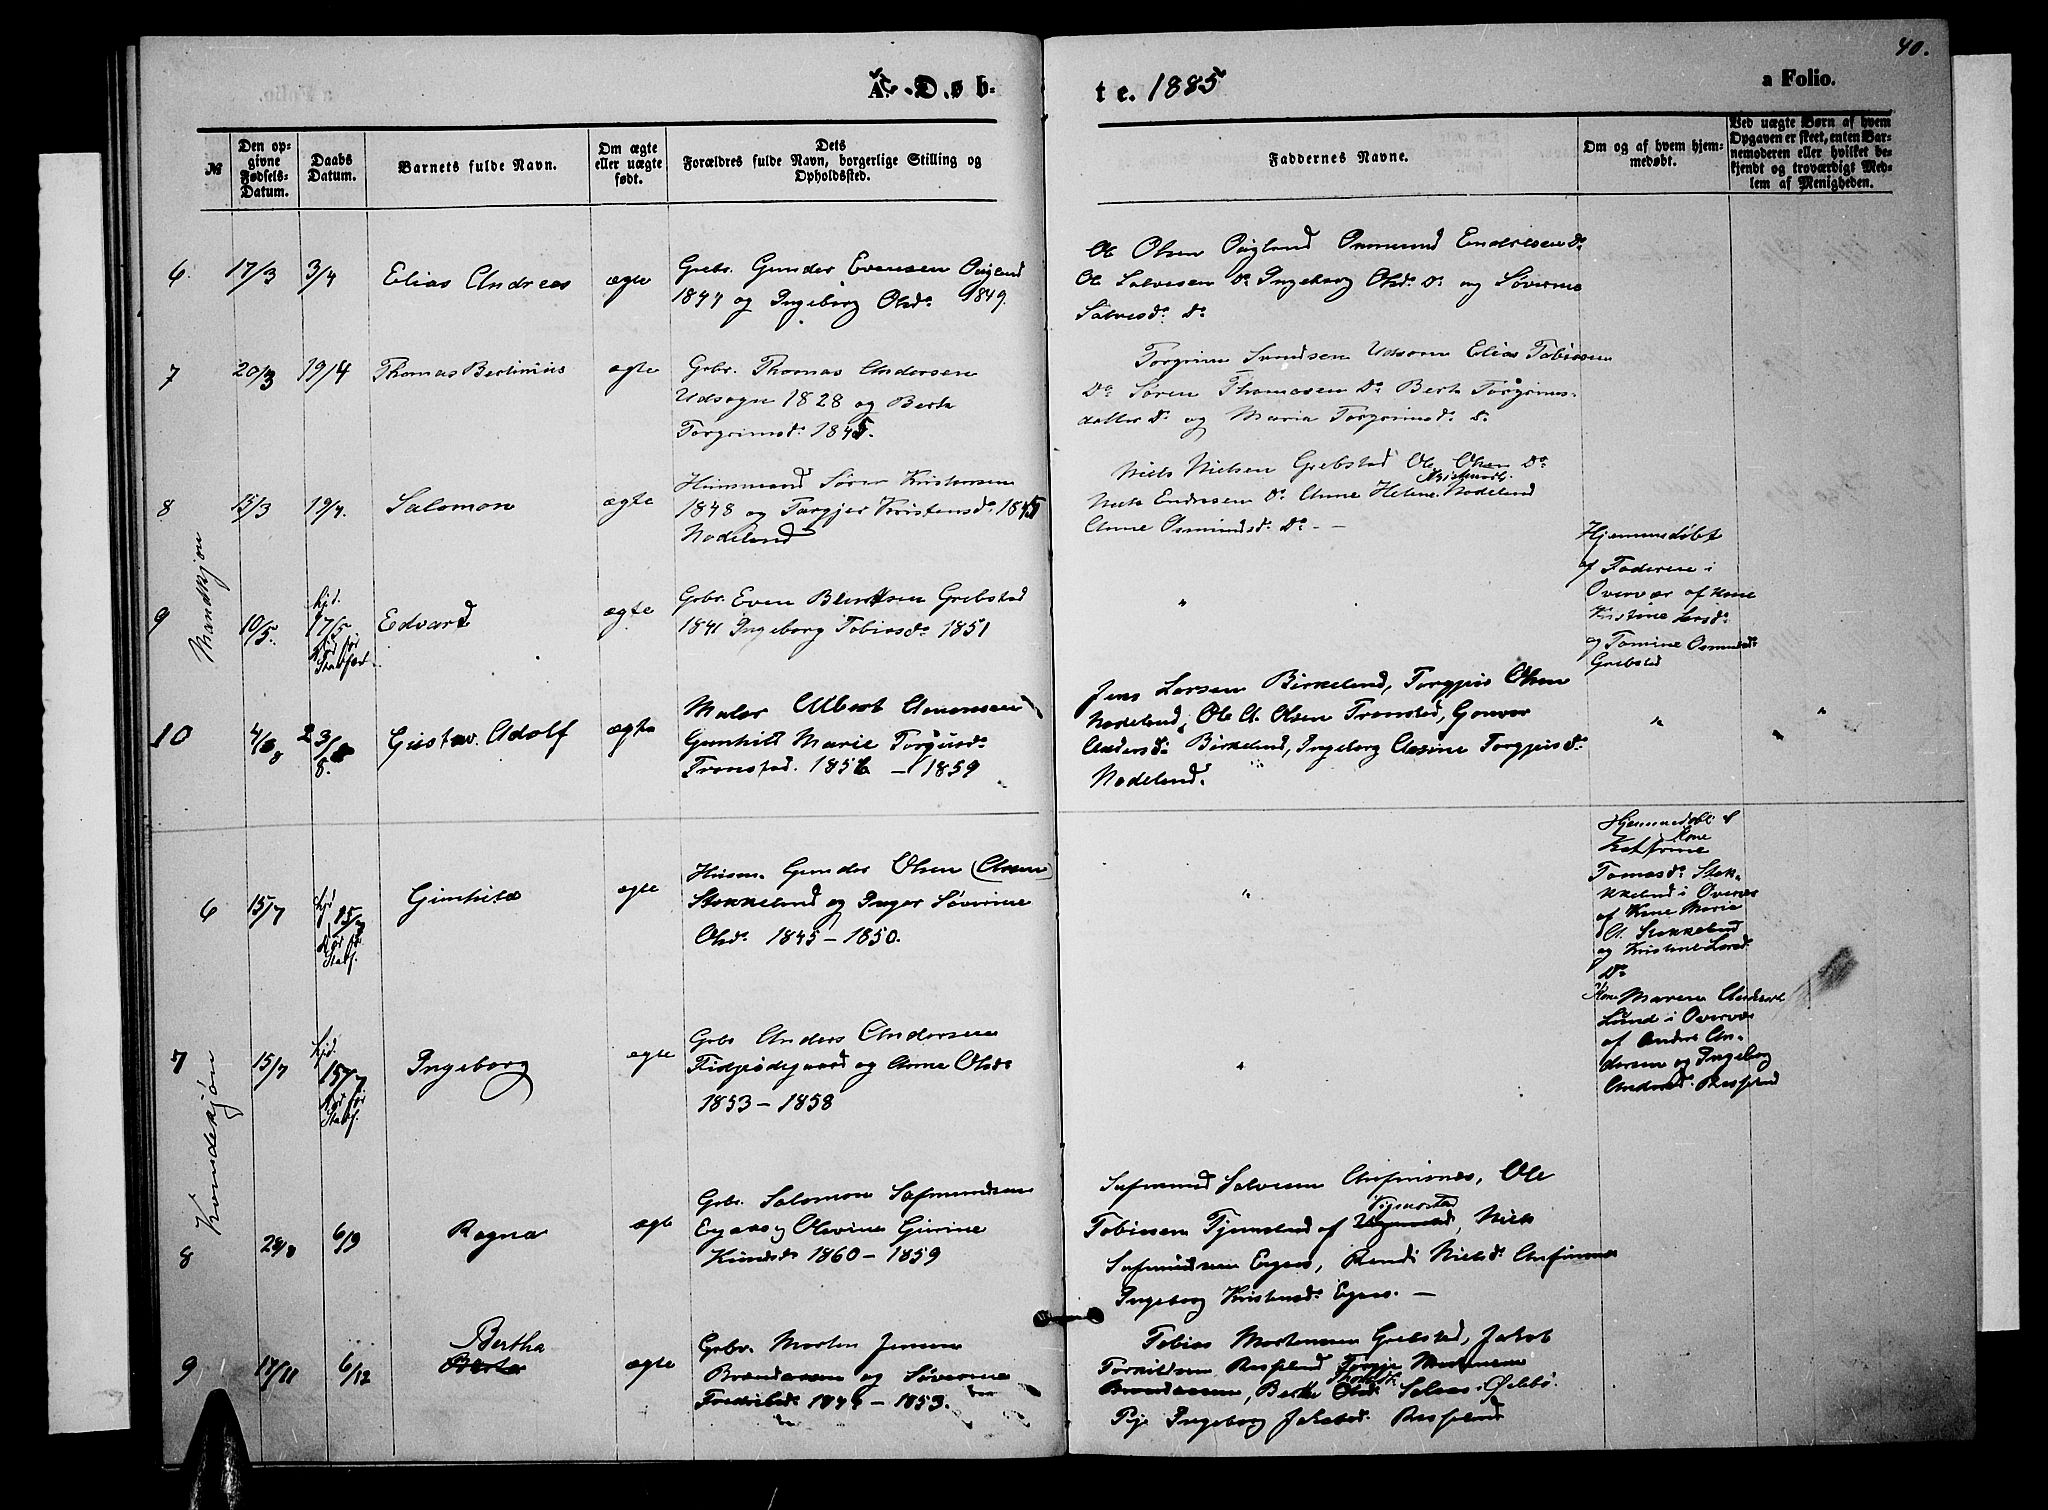 40.
A. Døb-
te. 1885
a Folio.
№
Den op-
givne
Fødsels-
Datum.
Daabs
Datum.
Barnets fulde Navn.
Om ægte
eller uægte
født.
Dets
Forældres fulde Navn, borgerlige Stilling og
Opholdssted.
Faddernes Navne.
Om og af hvem hjem-
medøbt.
Ved uægte Børn af hvem
Opgaven er skeet, enten Bar-
nemoderen eller hvilket be-
kjendt og troværdigt Med-
lem af Menigheden.
Mandkjøn
6. 17/3 3/4 Elias Andreas ægte
Grbr. Gunder Evensen Øigland
1844 og Ingeborg Olsd. 1849.
Ole Olsen Øigland Osmund Endresen do
Ole Salvesen do Ingeborg Olsd. do og Søverine
Salvesd. do
7 20/3 19/4 Thomas Bertinius ægte
Grbr. Thomas Andersen
Udsogn 1828 og Berte
Torgrimsd. 1845.
Torgrim Svendsen Udsogn Elias Tobiasen
Do Søren Thomasen Do Berte Torgrims-
datter do og Maria Torgrimsd. do
8 15/3 19/4. Salomon ægte
Huusmand Søren Kristensen
1848 og Torgjer Kristensd. 1845
Nodeland
Niels Nielsen Grebstad Ole Olsen Do
Niels Endresen do Anne Helene Nodeland
Anne Osmundsd. Do -
9 10/5. hjd. 17/5 Edvard ægte
Grbr. Even Berntsen Grebstad
1841 Ingeborg Tobiasd. 1851
"
Hjemmedøbt
af Faderen i
Overvær af Kone
Kristine Larsd.
og Tomine Osmundsd.
Grebstad
10 4/8 23/8. Gustav Adolf ægte
Maler Albert Amonsen
Gunhild Marie Torgiusd.
Tronstad. 1856 - 1859
Jens Larsen Birkeland, Torgjus Olsen
Nodeland, Ole A. Olsen Tronstad, Gonvor
Andersd. Birkeland, Ingeborg Asine Torgjusd.
Nodeland.
"
"
Kvindekjøn
6 15/7 hjd 15/7 Gunhild ægte
Husm. Gunder Olsen (Aasen)
Stokkeland og Inger Søverine
Olsd. 1845 - 1850.
"
Hjemmedøbt af
Kone
Kathrine
Tomasd. Stok-
kkeland i Overvær
af Kone Maria
A. Stokkeland
og Kristine Larsd.
Do
7 15/7 hjd. 15/7 Ingeborg ægte
Grbr Anders Andersen
Fidjeødegaard og Anne Olsd.
1853 - 1858
"
Kone Maren Andersd.
Lund i Overvær
af Anders An-
dersen og Ingeborg
Andersd. Røsseland
8 28/8 6/9 Ragna ægte
Grbr. Salomon Safmundsen
Egaas og Olevine Gurine
Knudsd. 1860 - 1859
Safmund Salvesen Anfinsnes, Ole
Tobiesen Tjomsland af Vigmostad, Niels
Safmundsen Egaas, Randi Nielsd. Anfinsnes
Ingeborg Kristensd. Egaas. -
9 17/11 6/12 Bertha
Berta ægte
Grbr. Morten Jensen
Brandaasen og Søverine
Fredriksd. 1844 - 1853.
Tobias Mortensen Grebstad, Jakob
Torkildsen Røsseland Torgje Mortensen
Brandaasen, Berte Olsd. Salaas i Øslebø
Pige Ingeborg Jakobsd. Røsseland